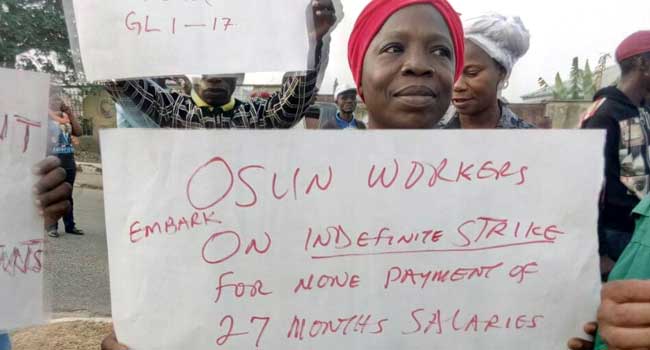 GL 1-17
IT
WNS
OSUN WORKERS
EMBARK
ON INDEFINITE STRIKE
FOR NONE PAYMENT OF
27 MONTHS SALARIES